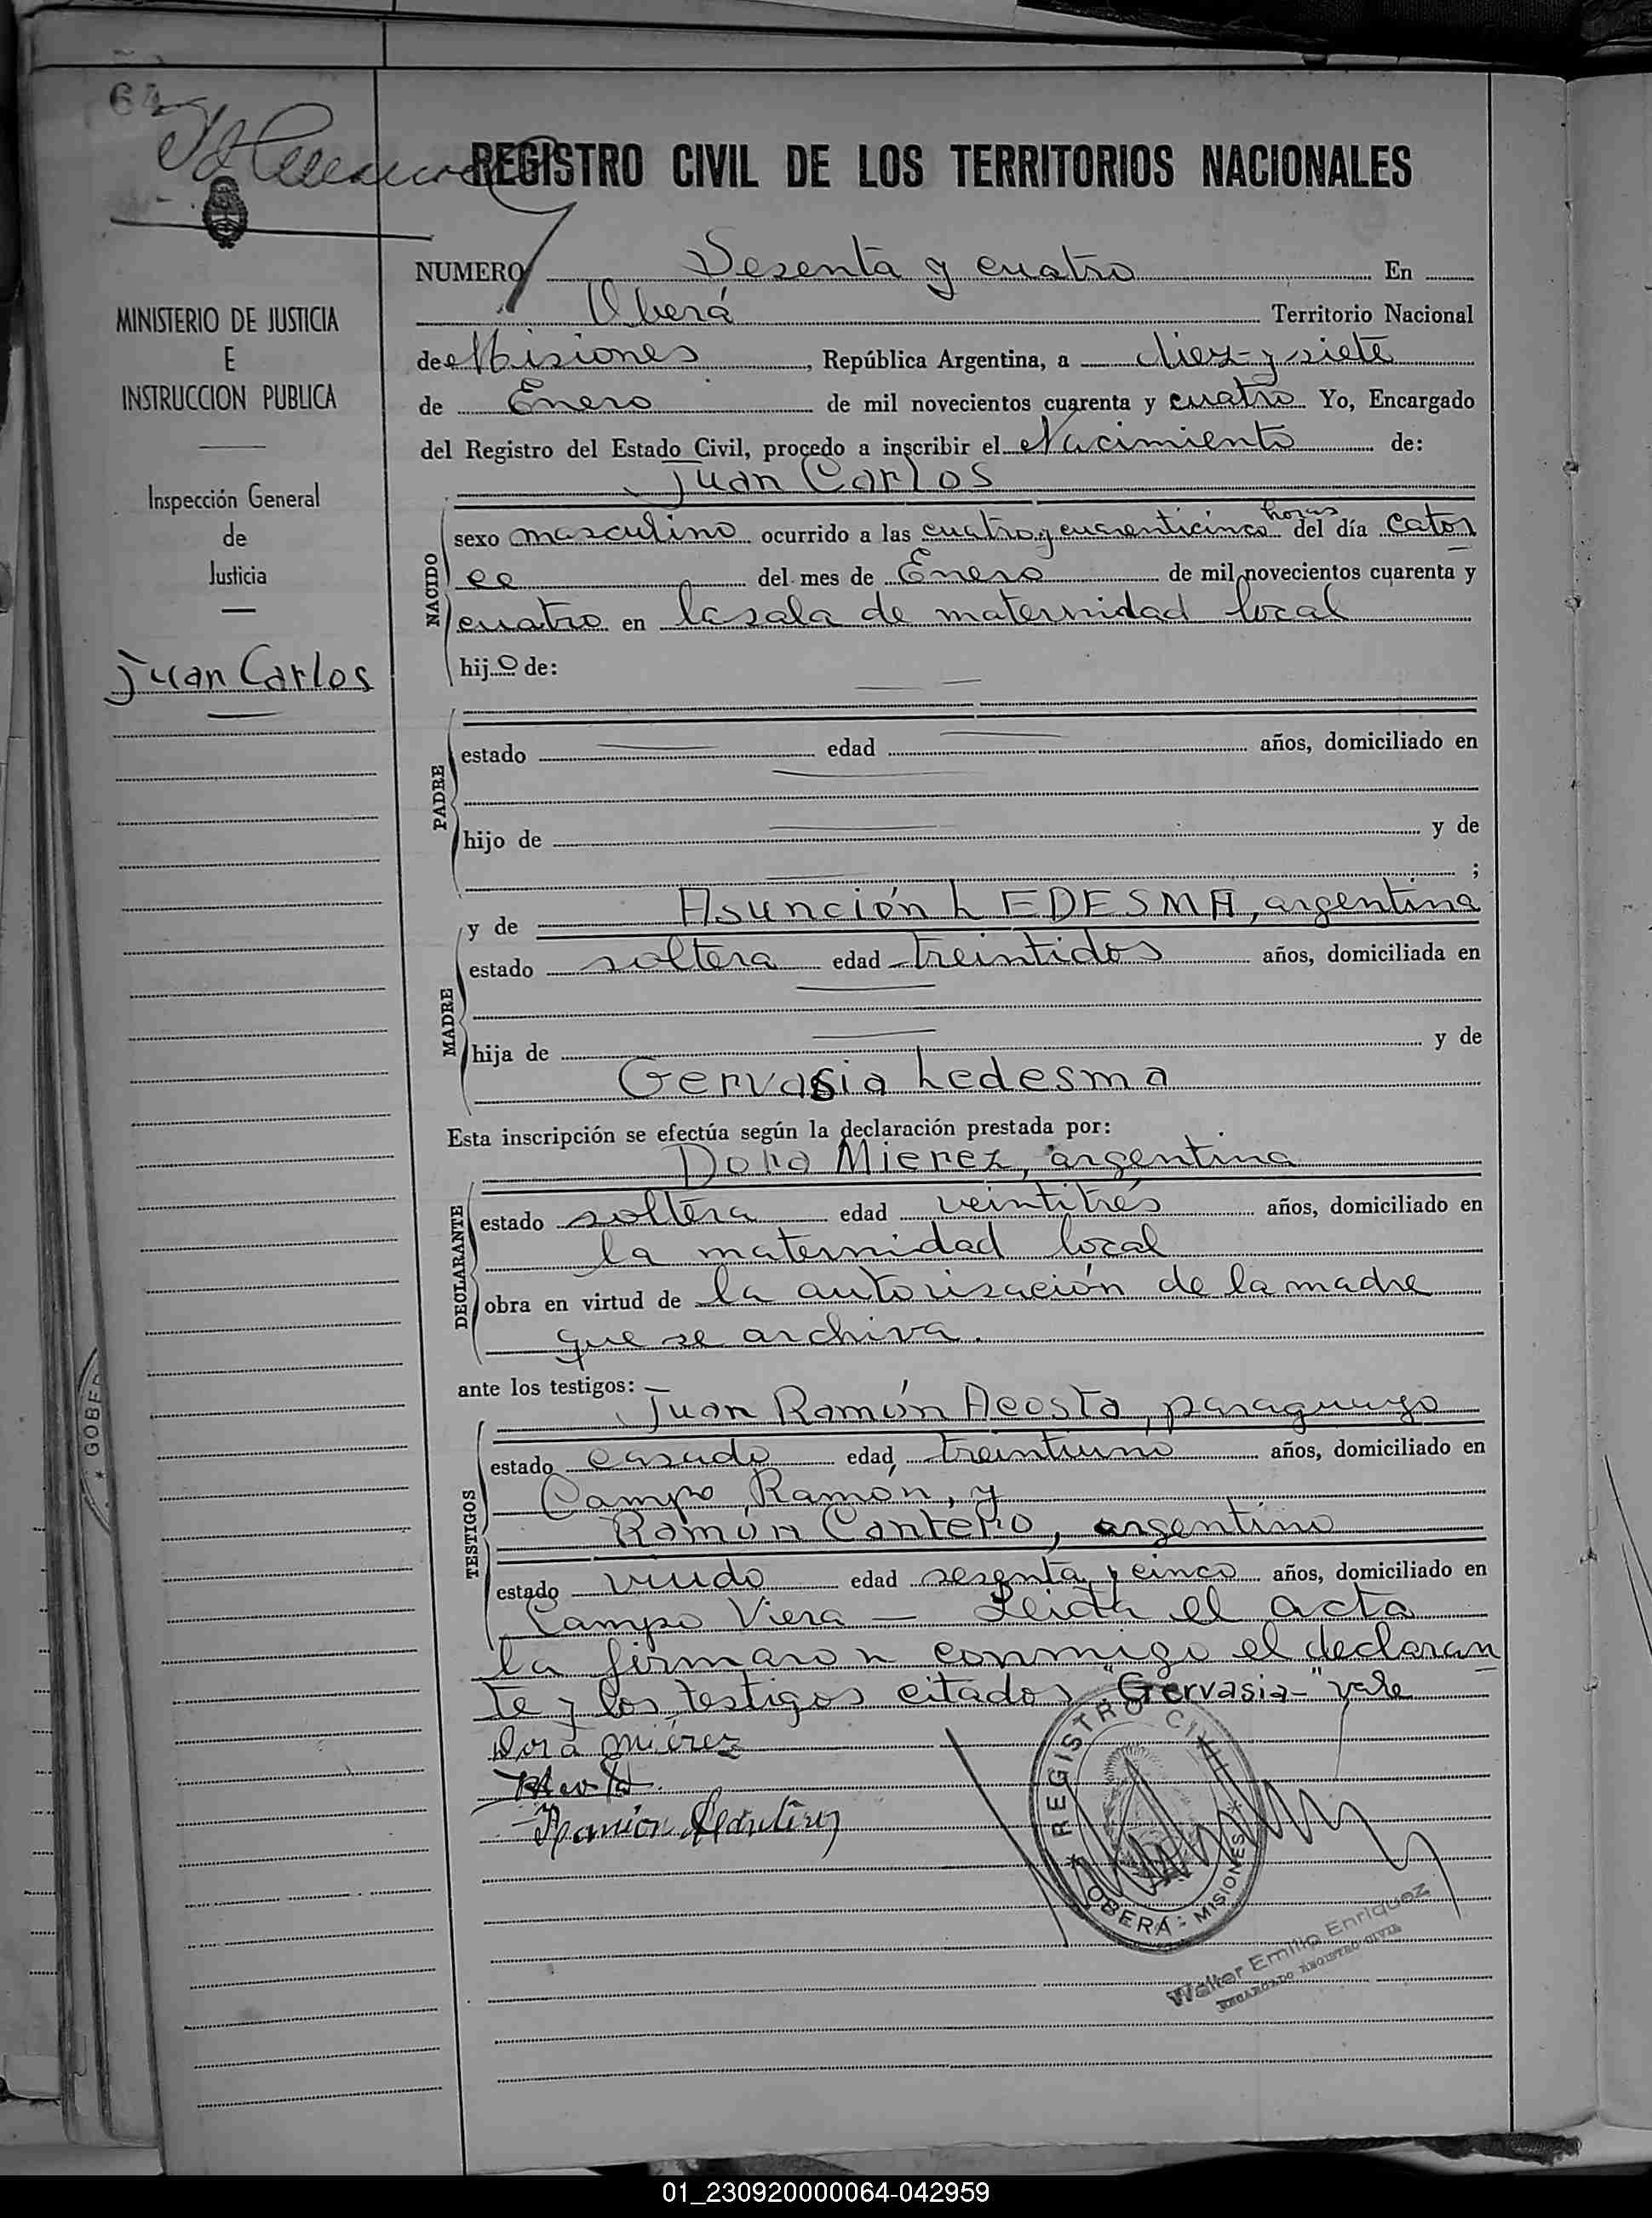 64
REGISTRO CIVIL DE LOS TERRITORIOS NACIONALES
MINISTERIO DE JUSTICIA
E
INSTRUCCION PUBLICA
Inspección General
de
Justicia
Juan Carlos
NUMERO Sesenta y cuatro En
Oberá Territorio Nacional
de Misiones, República Argentina, a diez y siete
de Enero de mil novecientos cuarenta y cuatro Yo, Encargado
del Registro del Estado Civil, procedo a inscribir el Nacimiento de:
Juan Carlos
NACIDO
sexo masculino ocurrido a las cuatro y cuarenticinco horas del día cator
ce del mes de Enero de mil novecientos cuarenta y
cuatro en la sala de maternidad local
hijo de:
PADRE
estado edad años, domiciliado en
hijo de y de
;
MADRE
y de Asunción LEDESMA, argentina
estado soltera edad treintidos años, domiciliada en
hija de y de
Gervasia Ledesma
Esta inscripción se efectúa según la declaración prestada por:
DECLARANTE
Dora Mierez, argentina
estado soltera edad veintitrés años, domiciliado en
la maternidad local
obra en virtud de la autorización de la madre
que se archiva.
ante los testigos:
TESTIGOS
Juan Ramón Acosta, paraguayo
estado casado edad treintiuno años, domiciliado en
Campo Ramón, y
Ramón Cantero, argentino
estado viudo edad sesenta y cinco años, domiciliado en
Campo Viera — Leida el acta
la firmaron conmigo el declaran
te y los testigos citados "Gervasia-" vale
Dora Miérez
Ramón
REGISTRO CIVIL
OBERÁ - MISIONES
Walter Emilio Enriquez
ENCARGADO REGISTRO CIVIL
* GOBER
01_230920000064-042959